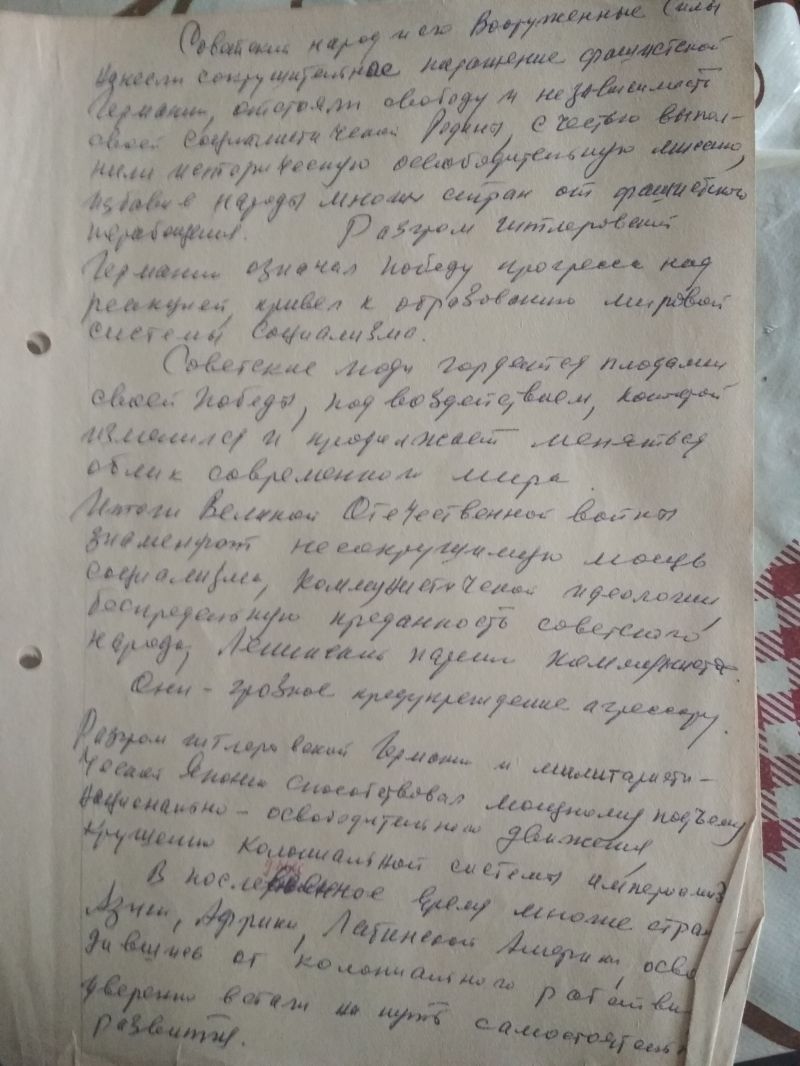 Советский народ и его Вооруженные Силы
нанесли сокрушительное поражение фашистской
Германии, отстояли свободу и независимость
своей социалистической Родины, с честью выпол-
нили историческую освободительную миссию,
избавив народы многих стран от фашистского
порабощения. Разгром гитлеровской
Германии означал победу прогресса над
реакцией, привел к образованию мировой
системы социализма.
Советские люди гордятся плодами
своей Победы, под воздействием, которой
изменился и продолжает меняться
облик современного мира.
Итоги Великой Отечественной войны
знаменуют несокрушимую мощь
социализма, коммунистической идеологии,
беспредельную преданность советского
народа, Ленинской партии коммунистов.
Они - грозное предупреждение агрессору.
Разгром гитлеровской Германии и милитаристи-
ческой Японии способствовал мощному подъему
национально - освободительного движения,
крушению колониальной системы империализ
В послевоенное время многие стран
Азии, Африки, Латинской Америки, осво
дившись от колониального рабства
уверенно встали на путь самостоятельн
развития.